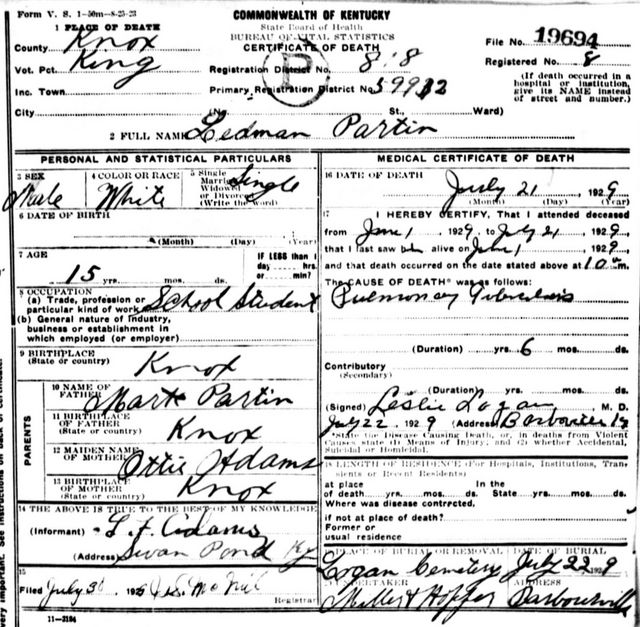 Form V. S. 1-50m-8-25-23
COMMONWEALTH OF KENTUCKY
State Board of Health
BUREAU OF VITAL STATISTICS
CERTIFICATE OF DEATH
File No. 19694
Registered No. 8
(If death occurred in a hospital or institution, give its NAME instead of street and number.)
1 PLACE OF DEATH
County Knox
Vot. Pct. King
Inc. Town
City
Registration District No. 818
Primary Registration District No.
(No. St., Ward)
2 FULL NAME Ledman Partin
PERSONAL AND STATISTICAL PARTICULARS
3 SEX Male
4 COLOR OR RACE White
5 Single Married Widowed or Divorced (Write the word) Single
6 DATE OF BIRTH
(Month) (Day) (Year)
7 AGE
15 yrs. mos. ds.
IF LESS than 1 day hrs. or min?
8 OCCUPATION
(a) Trade, profession or particular kind of work School Student
(b) General nature of industry, business or establishment in which employed (or employer)
9 BIRTHPLACE
(State or country) Knox
PARENTS
10 NAME OF FATHER Mark Partin
11 BIRTHPLACE OF FATHER
(State or country) Knox
12 MAIDEN NAME OF MOTHER Ottie Adams
13 BIRTHPLACE OF MOTHER
(State or country) Knox
14 THE ABOVE IS TRUE TO THE BEST OF MY KNOWLEDGE
(Informant) Adams
(Address) Swan Pond Ky
15
Filed July 30 192 Mc Neil
Registrar
11-3184
MEDICAL CERTIFICATE OF DEATH
16 DATE OF DEATH
July 21, 1929
(Month) (Day) (Year)
17 I HEREBY CERTIFY, That I attended deceased
from June 1 1929 to July 21, 1929
that I last saw h alive on 1, 1929
and that death occurred on the date stated above at 10 m.
The CAUSE OF DEATH* was as follows:
Pulmonary Tuberculosis
(Duration) yrs. 6 mos. ds.
Contributory
(Secondary)
(Duration) yrs. mos. ds.
(Signed) Leslie Logan, M. D.
July 22 1929 (Address) Barbourville Ky
*State the Disease Causing Death, or, in deaths from Violent Causes state (1) Means of Injury; and (2) whether Accidental, Suicidal or Homicidal.
18 LENGTH OF RESIDENCE (For Hospitals, Institutions, Transients or Recent Residents)
at place of death yrs. mos. ds. In the State yrs. mos. ds.
Where was disease contrected,
if not at place of death?
Former or usual residence
PLACE OF BURIAL OR REMOVAL DATE OF BURIAL
Logan Cemetery July 22 1929
UNDERTAKER ADDRESS
Hopper Barbourville